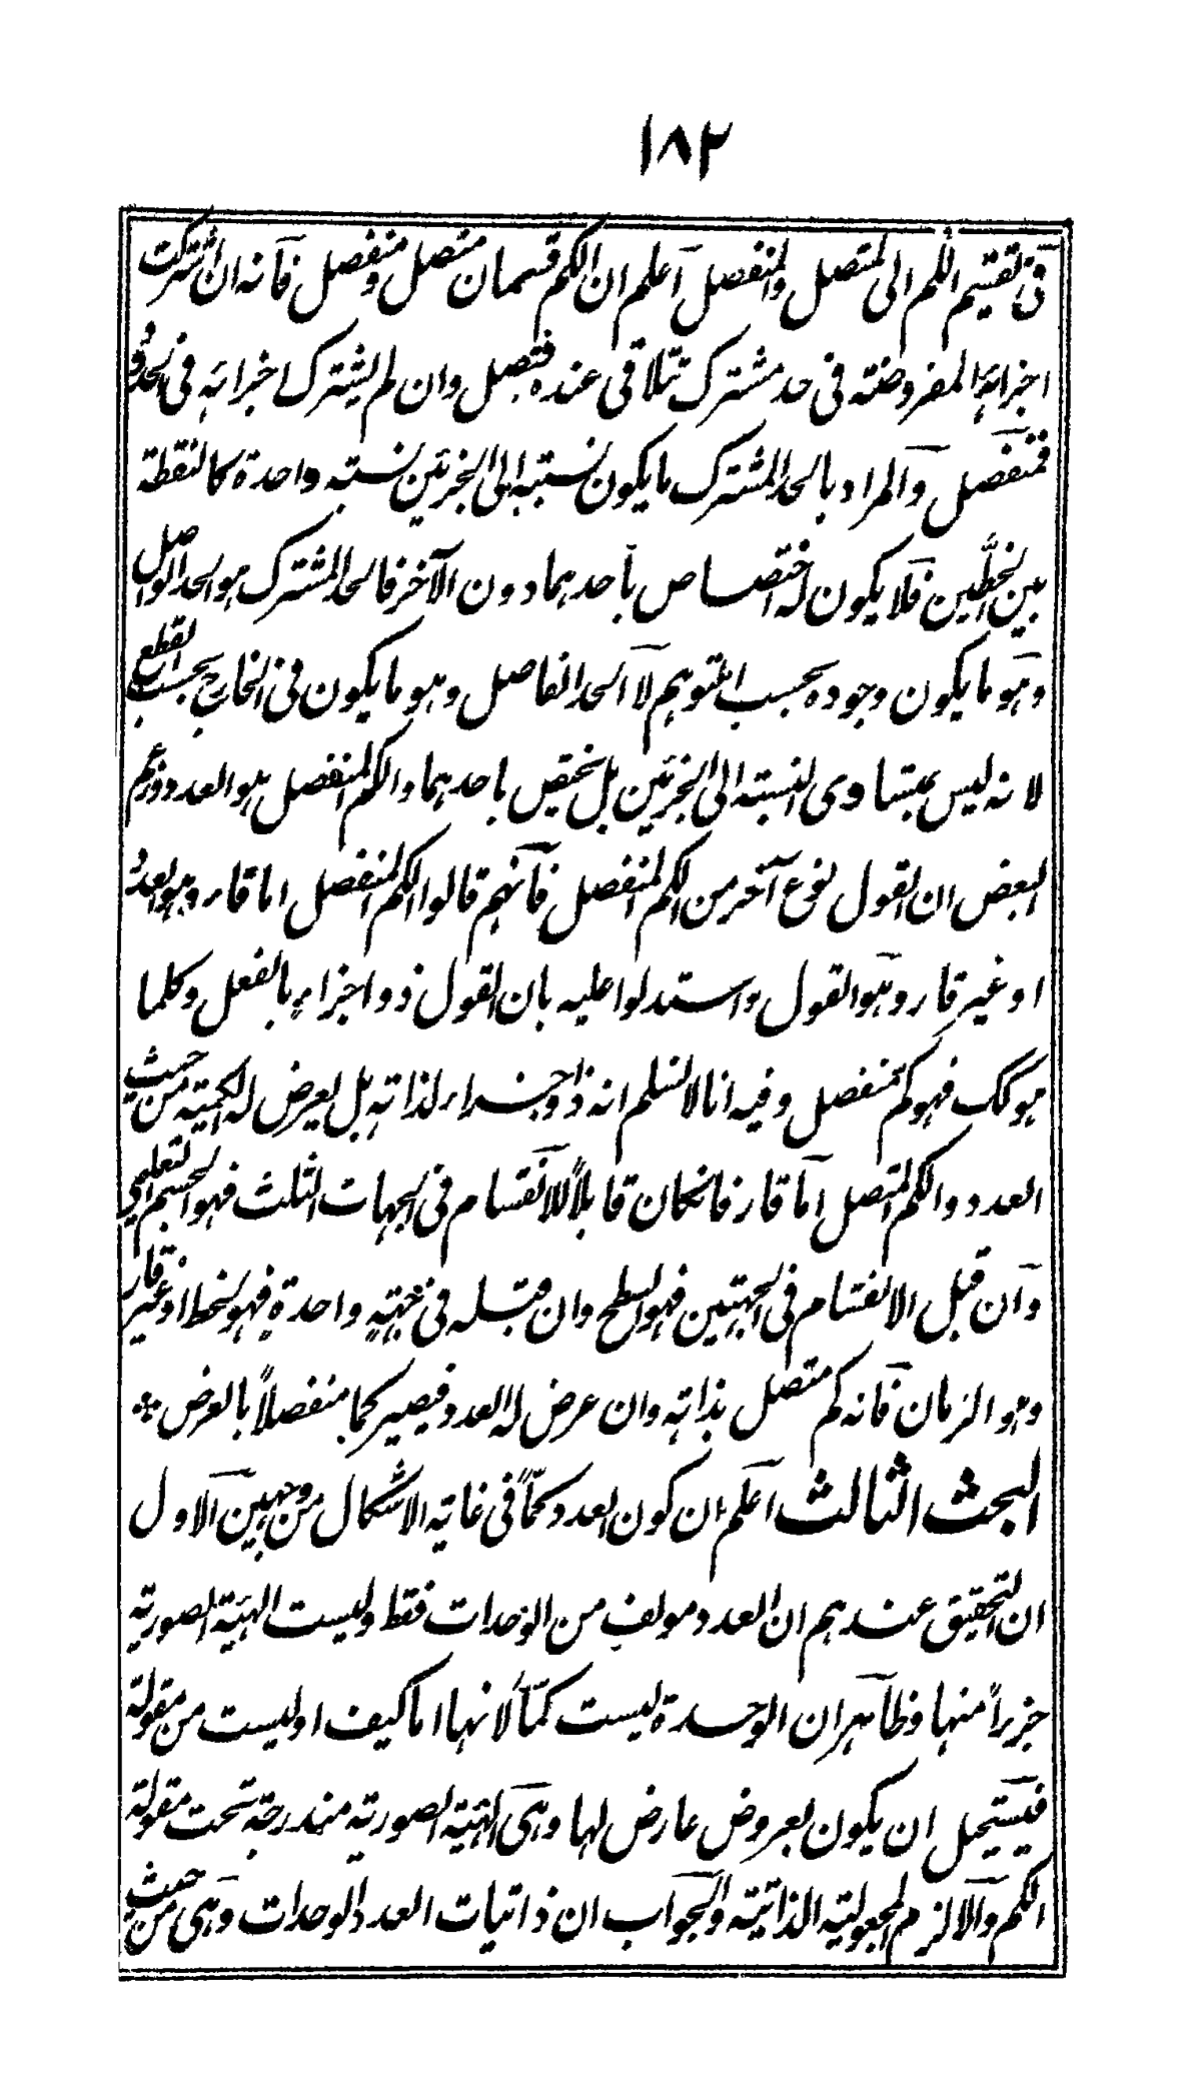 ١٨٢
فى تقسيم الكم الى المتصل والمنفصل اعلم ان الكم قسمان متصل ومنفصل فانه ان اشتركت
اجزائه المفروضة فى حد مشترك تتلاقى عنده فمتصل وان لم يشترك اجزائه فى الحدود
فمنفصل والمراد بالحد المشترك ما يكون نسبته الى الجزئين نسبة واحدة كالنقطة
بين الخطين فلا يكون له اختصاص باحدهما دون الآخر فالحد المشترك هو الحد الواصل
وهو ما يكون وجوده بحسب التوهم لا الحد الفاصل وهو ما يكون فى الخارج بحسب القطع
لانه ليس بمتساوى النسبة الى الجزئين بل يختص باحدهما والكم المنفصل هو العدد وزعم
البعض ان القول نوع آخر من الكم المنفصل فانهم قالوا الكم المنفصل اما قار وهو العدد
او غير قار وهو القول واستدلوا عليه بان القول ذو اجزاء بالفعل وكلما
هو كك فهو كم منفصل وفيه انا لا نسلم انه ذو اجزاء لذاته بل يعرض له الكمية من حيث
العدد والكم المتصل اما قار فانكان قابلاً للانقسام فى الجهات الثلث فهو الجسم التعليمى
وان قبل الانقسام فى الجهتين فهو السطح وان قبله فى جهةٍ واحدةٍ فهو الخط او غير قار
وهو الزمان فانه كم متصل بذاته وان عرض له العدد فيصير كما منفصلاً بالعرض
البحث الثالث اعلم ان كون العدد كمّاً فى غاية الاشكال من وجهين الاول
ان التحقيق عندهم ان العدد مولف من الوحدات فقط وليست الهيئة الصورية
جزءاً منها وظاهر ان الوحدة ليست كمّاً لانها اما كيف او ليست من مقولة
فيستحيل ان يكون بعروض عارض لها وهى الهيئة الصورية مندرجة تحت مقولة
الكم والا لزم المجعولية الذاتية والجواب ان ذاتيات العدد الوحدات وهى من حيث